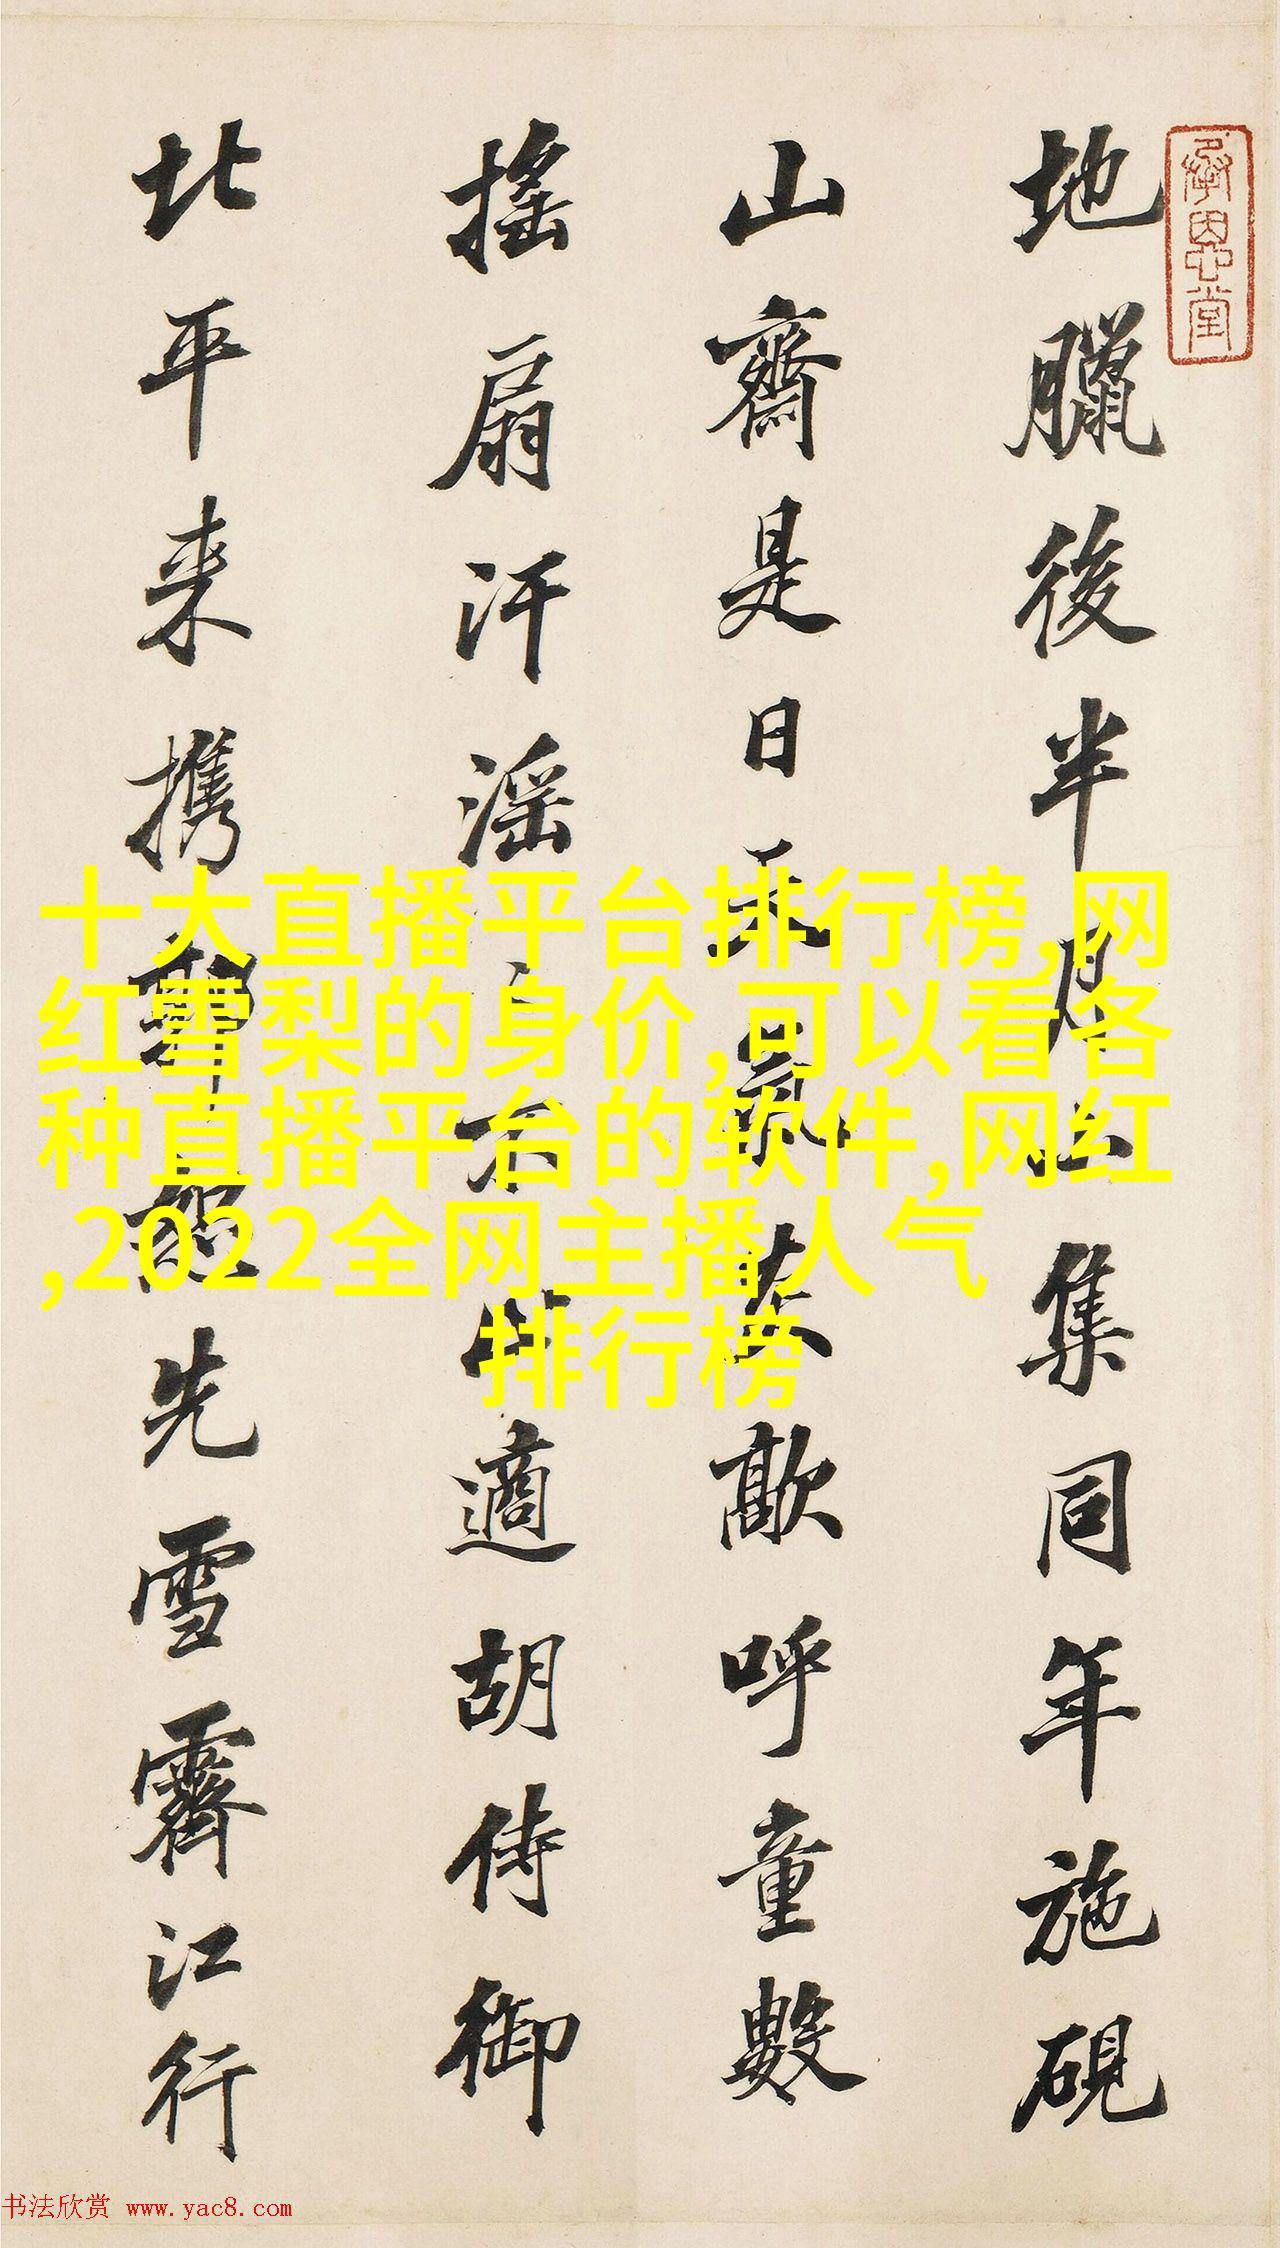 承恩堂
地臘後半月山集同年施硯
山齋是日天氣蒸歊呼童數
搖扇汗滛不適胡侍御
北平来携郭先雪霽江行
十大直播平台排行榜,网
红雪梨的身价,可以看各
种直播平台的软件,网红
,2022全网主播人气
排行榜
书法欣赏 www.yac8.com